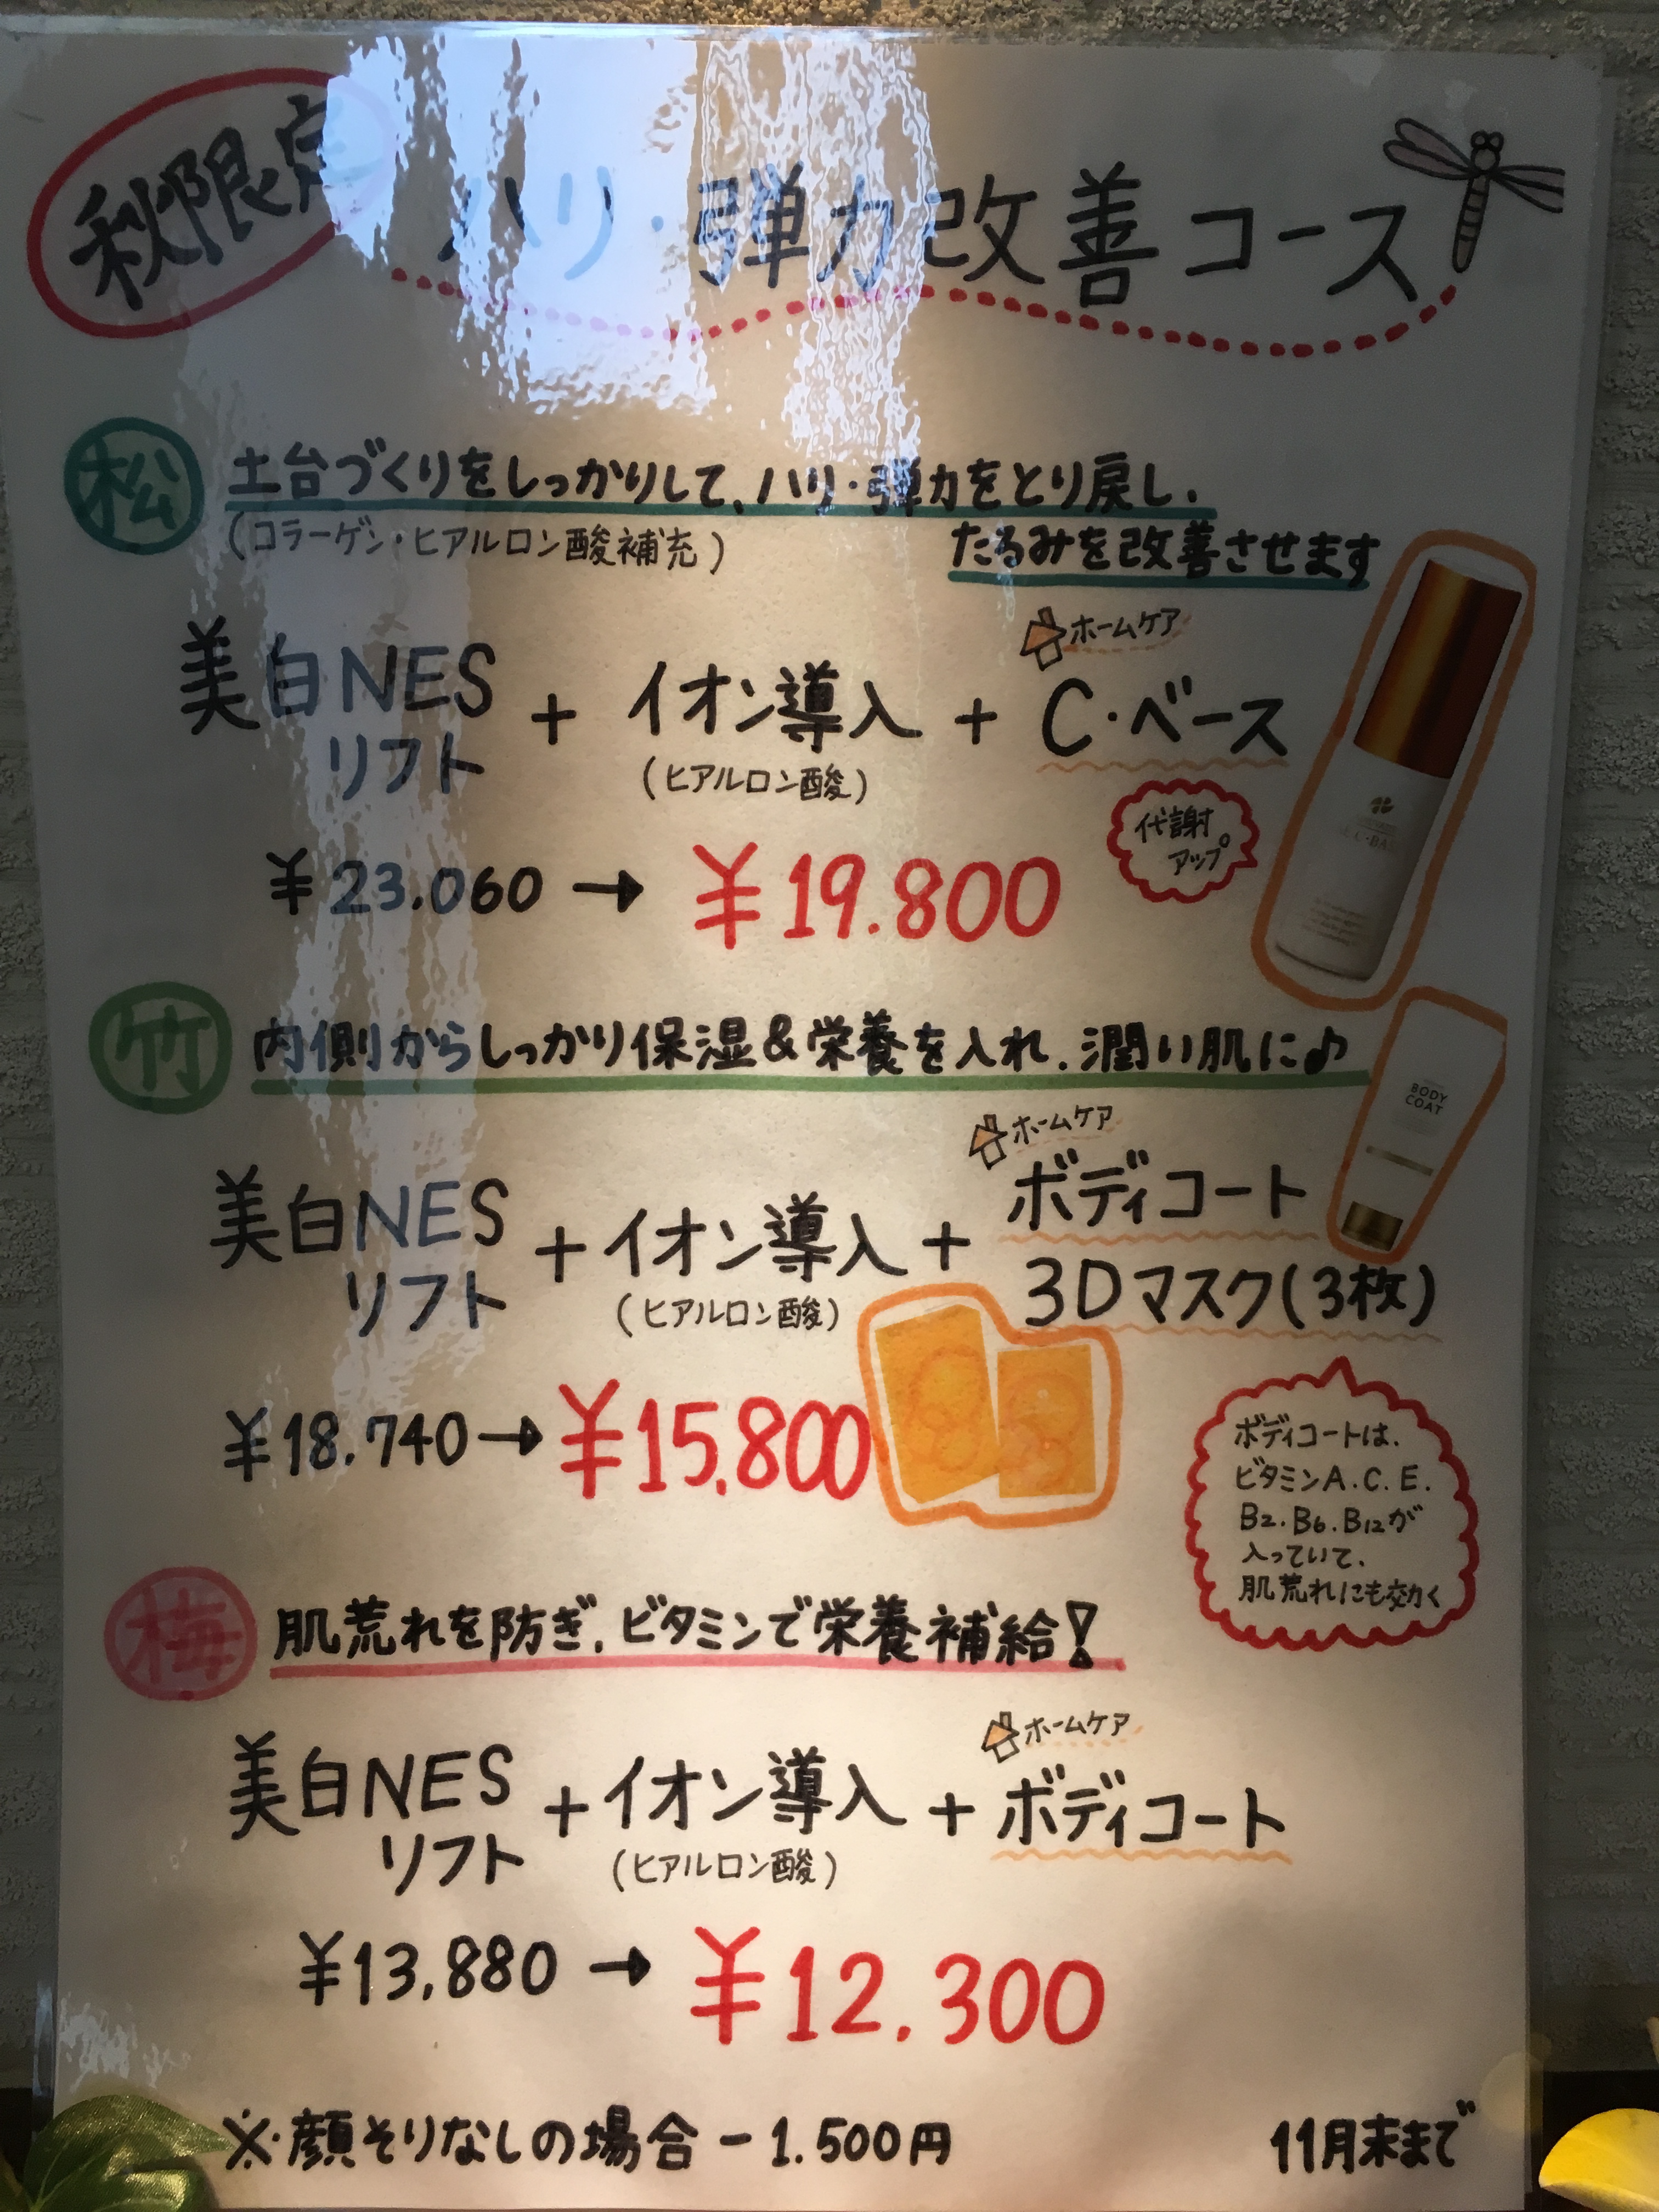 秋限定
ハリ・弾力改善コース
松 土台づくりをしっかりして、ハリ・弾力をとり戻し、
(コラーゲン・ヒアルロン酸補充)
たるみを改善させます
ホームケア
美白NES + イオン導入 + C・ベース
リフト
(ヒアルロン酸)
代謝
アップ
¥23.060 → ¥19.800
竹 内側からしっかり保湿&栄養を入れ、潤い肌に♪
BODY
COAT
ホームケア
ボディコート
美白NES + イオン導入 +
リフト
(ヒアルロン酸)
3Dマスク(3枚)
¥18.740 → ¥15,800
ボディコートは、
ビタミンA.C.E.
B2.B6.B12が
入っていて、
肌荒れにも効く
梅 肌荒れを防ぎ、ビタミンで栄養補給!
ホームケア
美白NES + イオン導入 + ボディコート
リフト
(ヒアルロン酸)
¥13,880 → ¥12.300
※・顔そりなしの場合 -1.500円
11月末まで